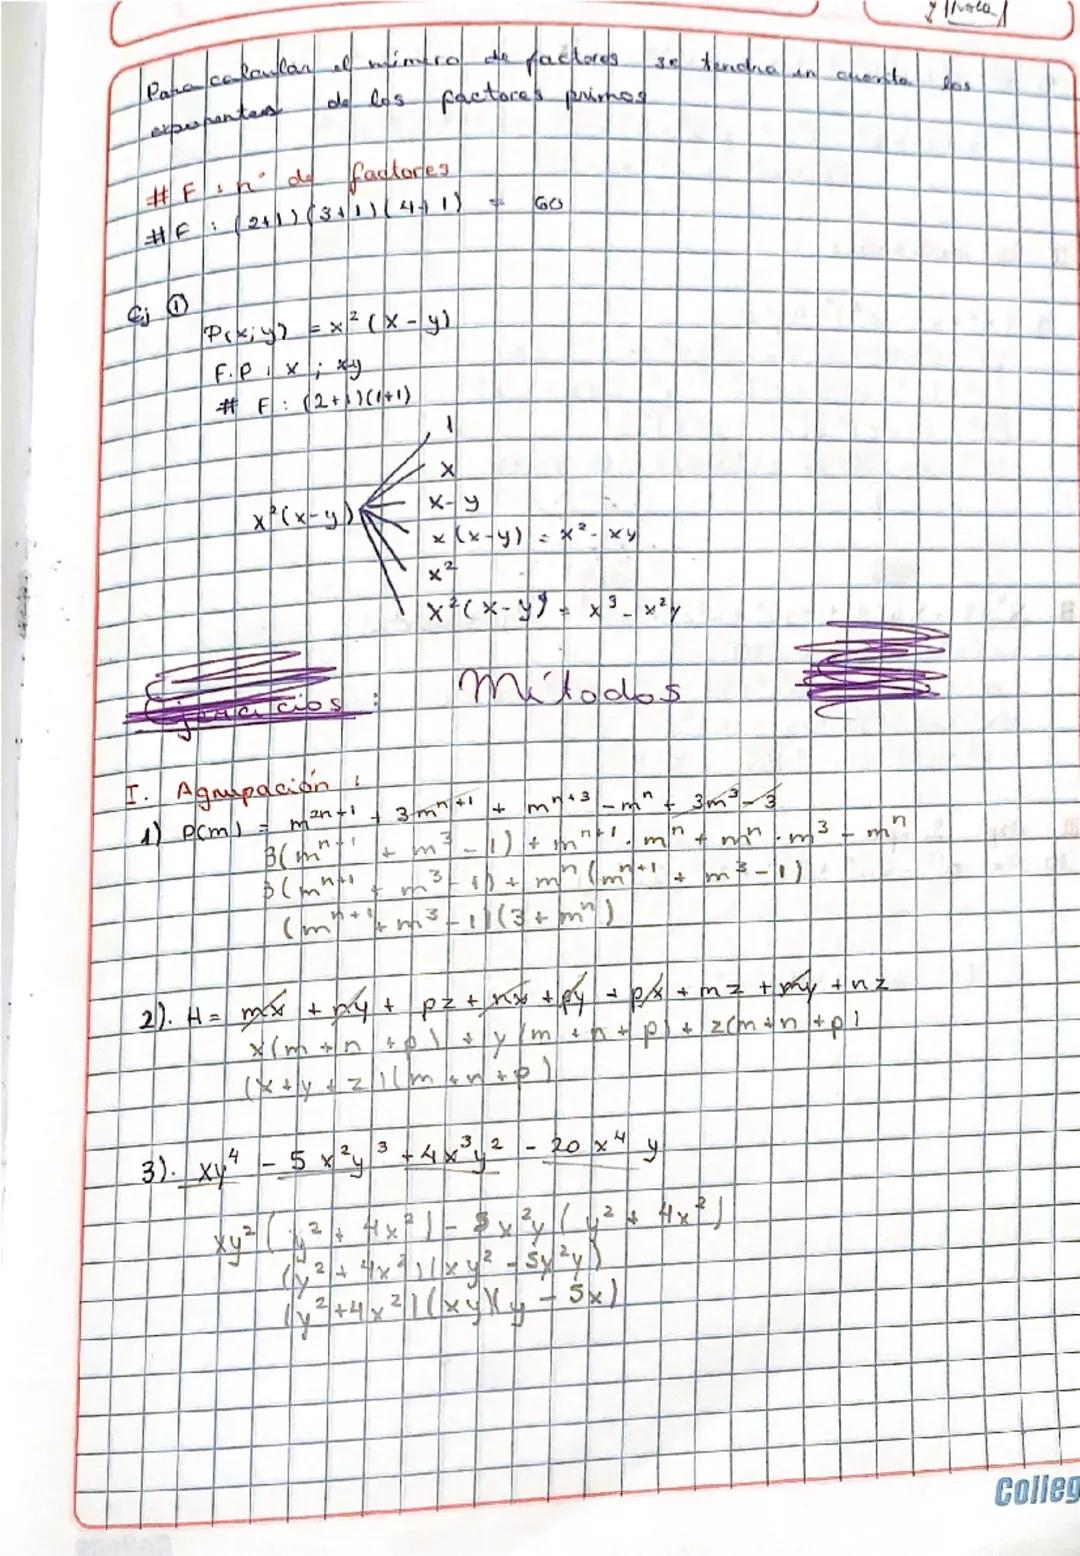 Para calcular el número de factores se tendrá en cuenta los
exponentes de los factores primos
# F : n° de factores
# F : (2+1)(3+1)(4+1) = 60
Ej ①
P(x;y) = x²(x-y)
F.P : x ; xy
# F : (2+1)(1+1)
1
x
x-y
x²(x-y)
x(x-y) = x²-xy
x²
x²(x-y) = x³-x²y
Ejercicios : Métodos
I. Agrupación :
1) P(m) = m²ⁿ⁺¹ + 3mⁿ⁺¹ + mⁿ⁺³ - mⁿ + 3m³ - 3
3(mⁿ⁺¹ + m³ - 1) + mⁿ⁺¹ . mⁿ + mⁿ . m³ - mⁿ
3(mⁿ⁺¹ + m³ - 1) + mⁿ(mⁿ⁺¹ + m³ - 1)
(mⁿ⁺¹ + m³ - 1)(3 + mⁿ)
2). H = mx + ny + pz + nx + py + px + mz + my + nz
x(m + n + p) + y(m + n + p) + z(m + n + p)
(x + y + z)(m + n + p)
3). xy⁴ - 5x²y³ + 4x³y² - 20x⁴y
xy²(y² + 4x²) - 5x²y(y² + 4x²)
(y² + 4x²)(xy² - 5y²y)
(y² + 4x²)(xy)(y - 5x)
Colleg